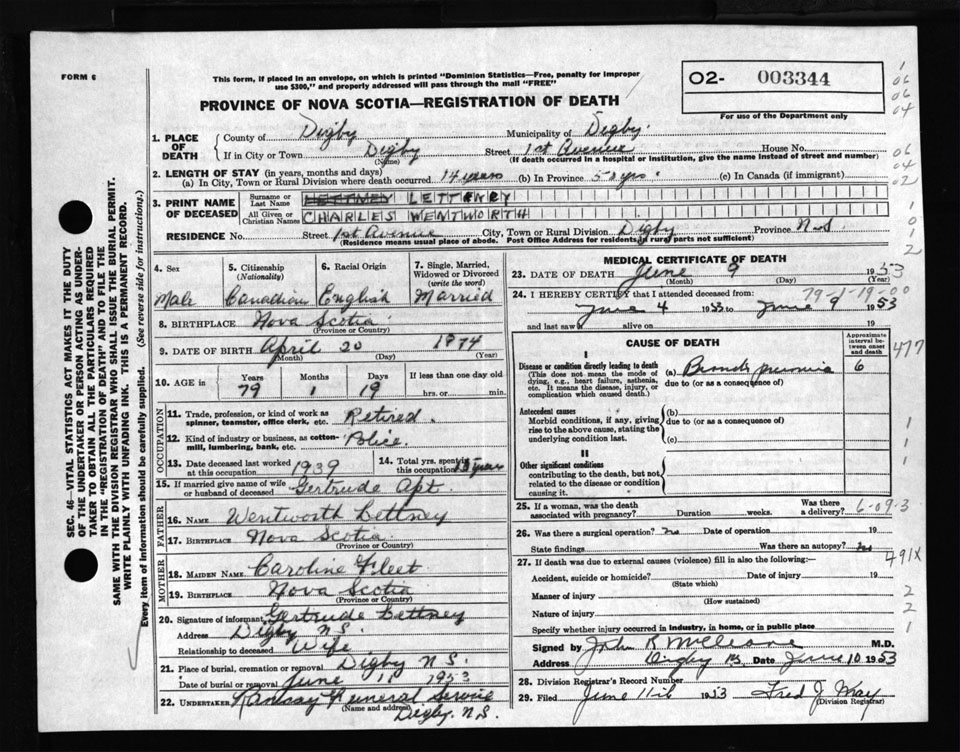 FORM 6
This form, if placed in an envelope, on which is printed "Dominion Statistics—Free, penalty for improper
use $300," and properly addressed will pass through the mail "FREE"
O2- 003344
For use of the Department only
PROVINCE OF NOVA SCOTIA—REGISTRATION OF DEATH
1. PLACE OF DEATH
County of Digby Municipality of Digby.
If in City or Town Digby (Name) Street 1st Avenue House No.
(If death occurred in a hospital or institution, give the name instead of street and number)
2. LENGTH OF STAY (in years, months and days)
(a) In City, Town or Rural Division where death occurred 14 years (b) In Province 50 yrs. (c) In Canada (if immigrant)
3. PRINT NAME OF DECEASED
Surname or Last Name LETTENEY
All Given or Christian Names CHARLES WENTWORTH
RESIDENCE No. Street 1st Avenue City, Town or Rural Division Digby Province N.S.
(Residence means usual place of abode. Post Office Address for residents of rural parts not sufficient)
4. Sex
Male
5. Citizenship (Nationality)
Canadian
6. Racial Origin
English
7. Single, Married, Widowed or Divorced (write the word)
Married
8. BIRTHPLACE Nova Scotia
(Province or Country)
9. DATE OF BIRTH April 20 1874
(Month) (Day) (Year)
10. AGE in Years Months Days If less than one day old
79 1 19 hrs. or min.
OCCUPATION
11. Trade, profession, or kind of work as
spinner, teamster, office clerk, etc. Retired.
12. Kind of industry or business, as cotton-
mill, lumbering, bank, etc. Police.
13. Date deceased last worked at this occupation 1939
14. Total yrs. spent in this occupation 15 years
15. If married give name of wife
or husband of deceased Gertrude Apt.
FATHER
16. NAME Wentworth Lettney
17. BIRTHPLACE Nova Scotia
(Province or Country)
MOTHER
18. MAIDEN NAME Caroline Fleet
19. BIRTHPLACE Nova Scotia
(Province or Country)
20. Signature of informant Gertrude Lettney
Address Digby N.S.
Relationship to deceased Wife
21. Place of burial, cremation or removal Digby N.S.
Date of burial or removal June 11 1953
22. UNDERTAKER Ramsay Funeral Service
(Name and address) Digby. N.S.
MEDICAL CERTIFICATE OF DEATH
23. DATE OF DEATH June 9 1953
(Month) (Day) (Year)
79-1-19-00
24. I HEREBY CERTIFY that I attended deceased from:
June 4 1953 to June 9 1953
and last saw alive on 19
CAUSE OF DEATH
Approximate interval between onset and death
I
Disease or condition directly leading to death
(This does not mean the mode of
dying, e.g., heart failure, asthenia,
etc. It means the disease, injury, or
complication which caused death.)
(a) 6
due to (or as a consequence of)
Antecedent causes
Morbid conditions, if any, giving
rise to the above cause, stating the
underlying condition last.
(b)
due to (or as a consequence of)
(c)
II
Other significant conditions
contributing to the death, but not
related to the disease or condition
causing it.
25. If a woman, was the death
associated with pregnancy? Duration weeks. Was there a delivery? 6-09-3
26. Was there a surgical operation no Date of operation 19
State findings Was there an autopsy? no
27. If death was due to external causes (violence) fill in also the following:
491X
Accident, suicide or homicide? Date of injury 19
(State which)
Manner of injury
(How sustained)
Nature of injury
Specify whether injury occurred in industry, in home, or in public place
Signed by M.D.
Address Digby N.S. Date June 10 1953
28. Division Registrar's Record Number
29. Filed June 11th 1953 Fred J. May
(Division Registrar)
SEC. 46—VITAL STATISTICS ACT MAKES IT THE DUTY
OF THE UNDERTAKER OR PERSON ACTING AS UNDER-
TAKER TO OBTAIN ALL THE PARTICULARS REQUIRED
IN THE "REGISTRATION OF DEATH" AND TO FILE THE
SAME WITH THE DIVISION REGISTRAR WHO SHALL ISSUE THE BURIAL PERMIT.
WRITE PLAINLY WITH UNFADING INK. THIS IS A PERMANENT RECORD.
Every item of information should be carefully supplied. (See reverse side for instructions.)